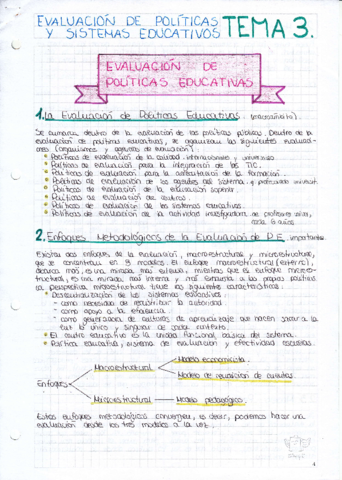 EVALUACIÓN DE POLÍTICAS
Y SISTEMAS EDUCATIVOS TEMA 3.
EVALUACIÓN DE
POLÍTICAS EDUCATIVAS
1. La Evaluación de Políticas Educativas.
Se enmarca dentro de la evaluación de las políticas públicas. Dentro de la
evaluación de políticas educativas, se organizan las siguientes evaluado-
res (organismos y agencias de evaluación):
• Políticas de evaluación de la calidad internacionales y
• Políticas de evaluación para la integración de las TIC.
• Políticas de evaluación para la acreditación de la formación.
• Políticas de evaluación de los agentes del sistema y profesorado universit.
• Políticas de evaluación de la educación superior.
• Políticas de evaluación de centros.
• Políticas de evaluación de los sistemas educativos.
• Políticas de evaluación de la actividad investigadora de profesores
cada 6 años.
2. Enfoques Metodológicos de la Evaluación de P.E. importantes.
Existen dos enfoques de la evaluación, macroestructural y microestructural,
que se concentran en 3 modelos. El enfoque macroestructural (externo),
es una mirada más externa, mientras que el enfoque microes-
tructural, es una mirada más interna y más cercana a la propia política.
La perspectiva microestructural tiene las siguientes características:
• Descentralización de los sistemas educativos
- como necesidad de redistribuir la autoridad.
- como apoyo a la eficiencia.
- como generadora de culturas de aprendizaje que hacen salir a la
luz lo único y singular de cada contexto.
• El centro educativo es la unidad funcional básica del sistema.
• Política educativa, sistema de evaluación y efectividad escolares.
Enfoques
Macroestructural
Modelo economicista.
Modelo de rendición de cuentas.
Microestructural
Modelo pedagógico.
Estos enfoques metodológicos convergen, es decir, podemos hacer una
evaluación desde los tres modelos a la vez.
4